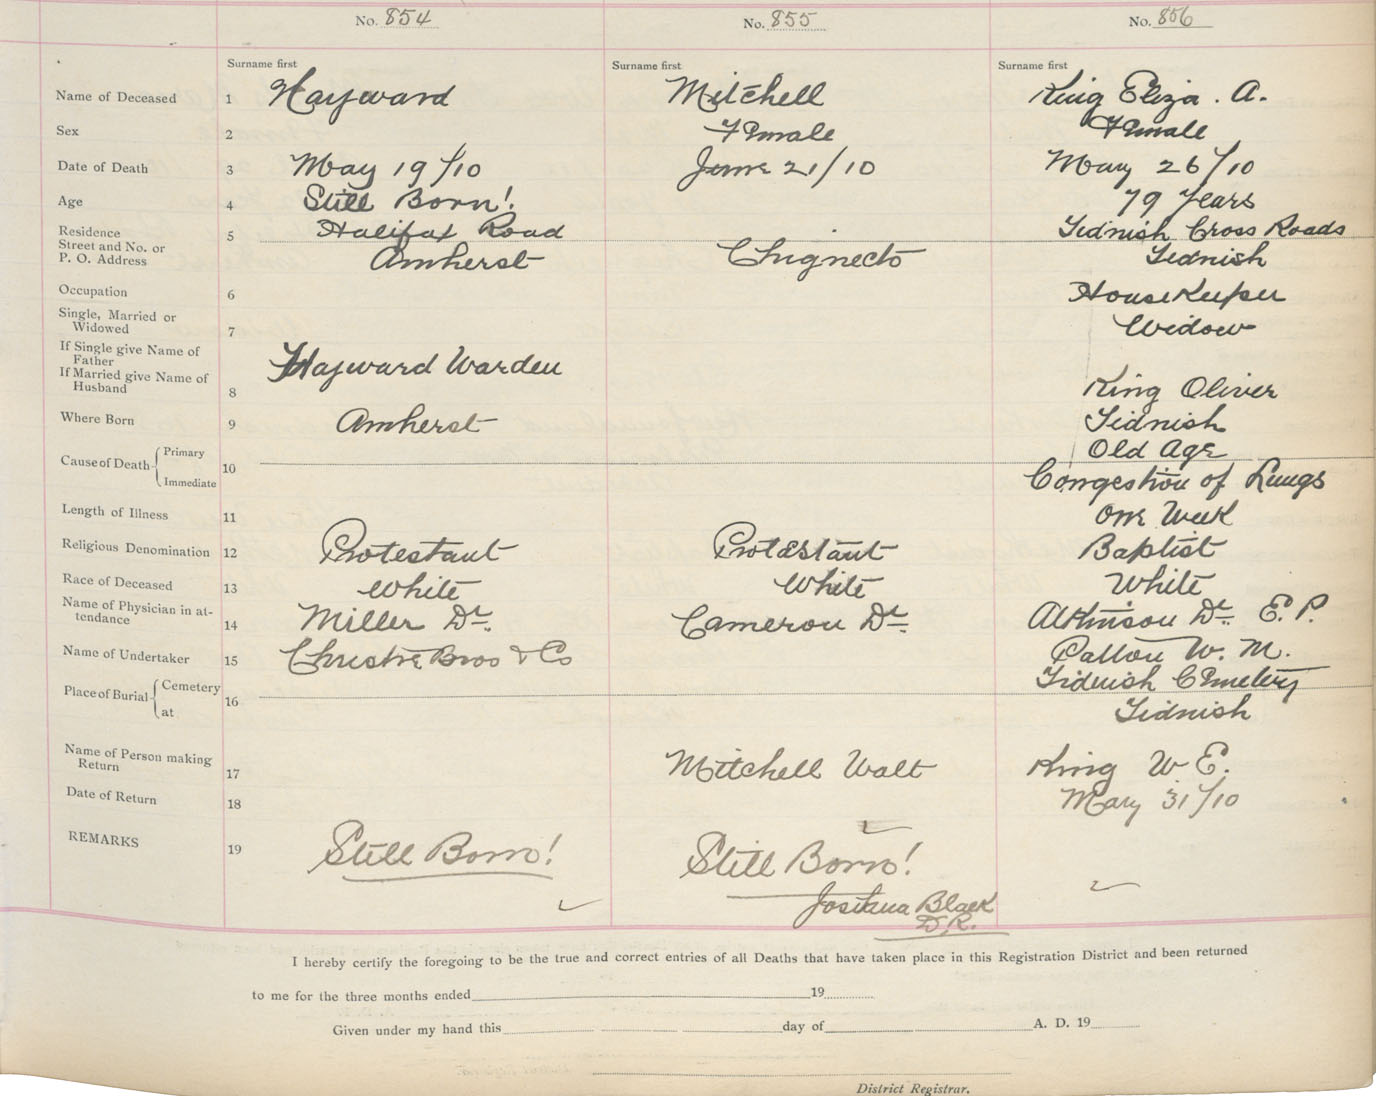 No. 854 No. 855 No. 856
Surname first Surname first Surname first
Name of Deceased 1 Hayward Mitchell King Eliza. A.
Sex 2 Female Female
Date of Death 3 May 19/10 June 21/10 May 26/10
Age 4 Still Born! 79 Years
Residence 5 Halifax Road Tidnish Cross Roads
Street and No. or
P. O. Address Amherst Chignecto Tidnish
Occupation 6 HouseKeeper
Single, Married or
Widowed 7 Widow
If Single give Name of
Father Hayward Warden
If Married give Name of
Husband 8 King Oliver
Where Born 9 Amherst Tidnish
Cause of Death Primary Old Age
10
Immediate Congestion of Lungs
Length of Illness 11 One Week
Religious Denomination 12 Protestant Protestant Baptist
Race of Deceased 13 White White White
Name of Physician in at-
tendance 14 Miller Dr. Cameron Dr. Atkinson Dr. E. P.
Name of Undertaker 15 Christie Bros & Co Patton W. M.
Place of Burial Cemetery Tidnish Cemetery
16
at Tidnish
Name of Person making
Return 17 Mitchell Walt King W. E.
Date of Return 18 May 31/10
REMARKS 19 Still Born! Still Born!
Black
D.R.
I hereby certify the foregoing to be the true and correct entries of all Deaths that have taken place in this Registration District and been returned
to me for the three months ended 19
Given under my hand this day of A. D. 19
District Registrar.